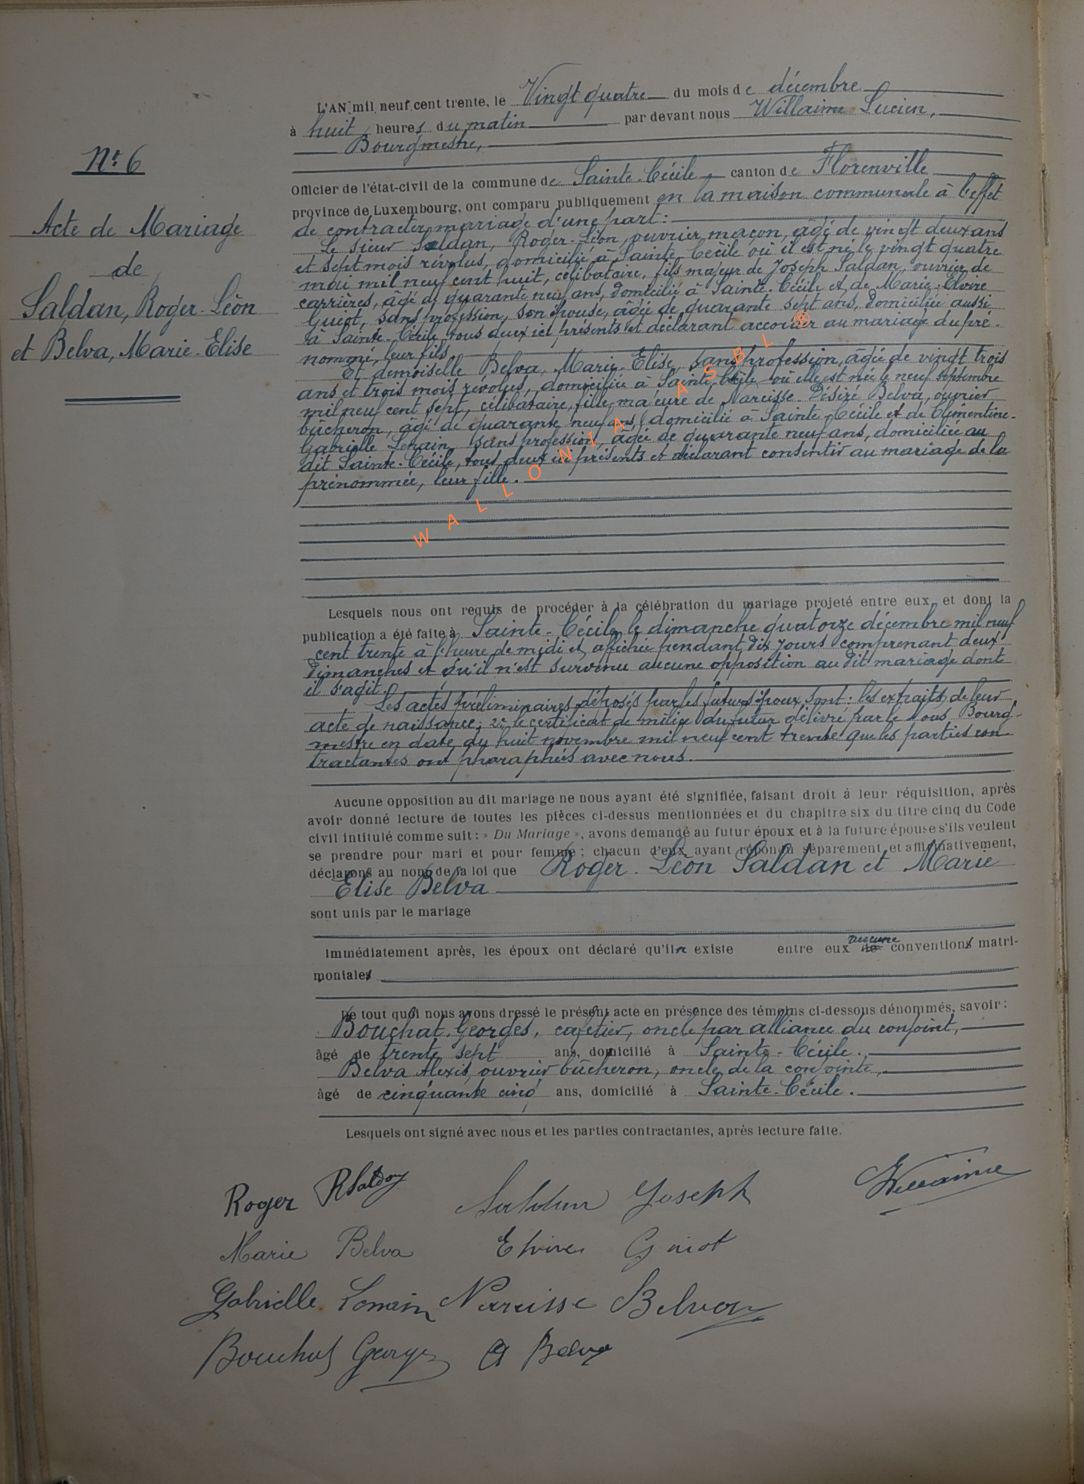 N° 6
Acte de Mariage
de
Saldan, Roger-Léon
et Belva, Marie-Elise
L'AN mil neuf cent trente, le Vingt quatre du mois de décembre
à huit heures du matin par devant nous Willaime Lucien,
Bourgmestre,
Officier de l'état-civil de la commune de Sainte-Cécile, canton de Florenville
province de Luxembourg, ont comparu publiquement en la maison communale à l'effet
de contracter mariage d'une part:
Le sieur Saldan, Roger-Léon, ouvrier maçon, âgé de vingt deux ans
et sept mois révolus, domicilié à Sainte-Cécile où il est né le vingt quatre
mai mil neuf cent huit, célibataire, fils majeur de Joseph Saldan, ouvrier de
carrières, âgé de quarante neuf ans, domicilié à Sainte-Cécile et de Marie
Guiot, sans profession, son épouse, âgée de quarante sept ans, domiciliée aussi
à Sainte-Cécile, tous deux ici présents et déclarant accorder au mariage du pré-
nommé, leur fils.
Et demoiselle Belva, Marie-Elise, sans profession, âgée de vingt trois
ans et trois mois révolus, domiciliée à Sainte-Cécile où elle est née le neuf septembre
mil neuf cent sept, célibataire, fille majeure de Narcisse-Désiré Belva, ouvrier
bûcheron, âgé de quarante neuf ans, domicilié à Sainte-Cécile et de Clémentine-
Gabrielle Lomain, sans profession, âgée de quarante neuf ans, domiciliée au
dit Sainte-Cécile, tous deux ici présents et déclarant consentir au mariage de la
prénommée, leur fille.
WALLONIA ASBL ®
Lesquels nous ont requis de procéder à la célébration du mariage projeté entre eux, et dont la
publication a été faite à Sainte-Cécile, le dimanche quatorze décembre mil neuf
cent trente à l'heure de midi et affichée pendant dix jours comprenant deux
dimanches et qu'il n'est survenu aucune opposition au dit mariage dont
il s'agit.
Les actes préliminaires déposés par les futurs époux sont: les extraits de leur
acte de naissance; 2° le certificat de milice du futur délivré par le Bourg-
mestre en date du huit novembre mil neuf cent trente que les parties con-
tractantes ont paraphés avec nous.
Aucune opposition au dit mariage ne nous ayant été signifiée, faisant droit à leur réquisition, après
avoir donné lecture de toutes les pièces ci-dessus mentionnées et du chapitre six du titre cinq du Code
civil intitulé comme suit: « Du Mariage », avons demandé au futur époux et à la future épouse s'ils veulent
se prendre pour mari et pour femme; chacun d'eux ayant répondu séparement et affirmativement,
déclarons au nom de la loi que Roger-Léon Saldan et Marie
Elise Belva
sont unis par le mariage
Immédiatement après, les époux ont déclaré qu'il n'existe entre eux aucune conventions matri-
moniales
De tout quoi nous avons dressé le présent acte en présence des témoins ci-dessous dénommés, savoir:
Bouchat Georges, cafetier, oncle par alliance du conjoint,
âgé de trente sept ans, domicilié à Sainte-Cécile.
Belva Alexis, ouvrier bûcheron, oncle de la conjointe,
âgé de cinquante cinq ans, domicilié à Sainte-Cécile.
Lesquels ont signé avec nous et les parties contractantes, après lecture faite.
Roger RSaldan Saldan Joseph LWillaime
Marie Belva Elvire Guiot
Gabrielle Lomain Narcisse Belva
Bouchat Georges A Belva